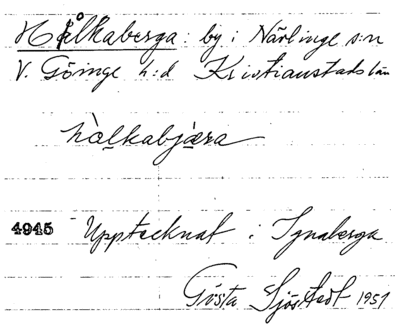 Hålkaberga: by i Nårlinge s:n
V. Göinge h:d Kristianstads län
hàlkabjæra
4945 Upptecknat i Ignaberga
Gösta Sjöstedt 1951